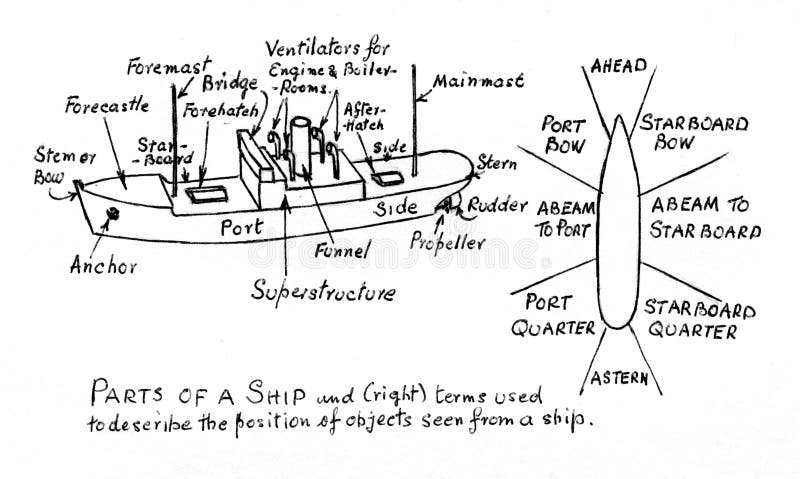 Ventilators for
Engine & Boiler-
-Rooms.
Foremast
Bridge
Mainmast
Forecastle
Forehatch
After-
-Hatch
Star-
-Board
Side
Stem or
Bow
Stern
Port
Side
Rudder
Propeller
Funnel
Anchor
Superstructure
AHEAD
PORT
BOW
STARBOARD
BOW
ABEAM
TO PORT
ABEAM TO
STARBOARD
PORT
QUARTER
STARBOARD
QUARTER
ASTERN
PARTS OF A SHIP and (right) terms used
to describe the position of objects seen from a ship.
dreamstime